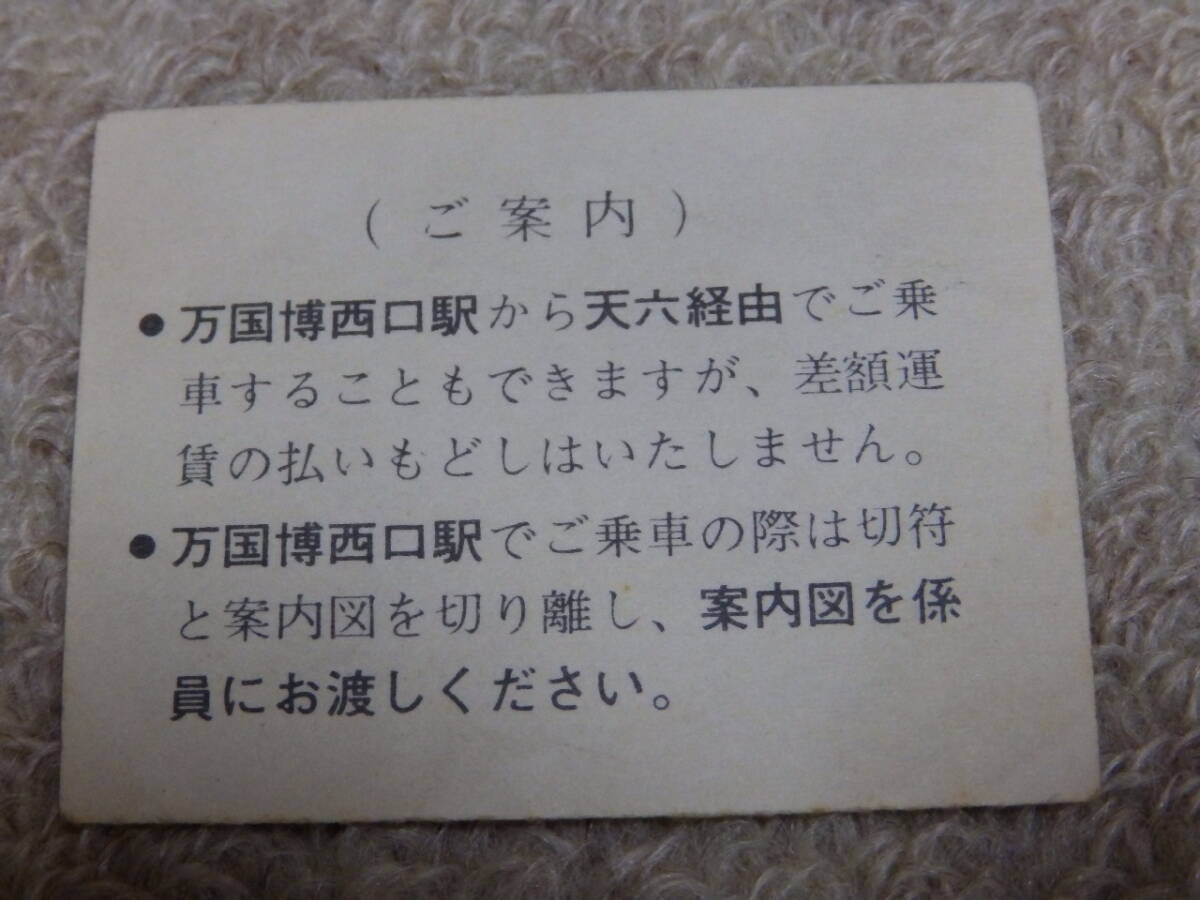 (ご案内)
●万国博西口駅から天六経由でご乗
車することもできますが、差額運
賃の払いもどしはいたしません。
●万国博西口駅でご乗車の際は切符
と案内図を切り離し、案内図を係
員にお渡しください。